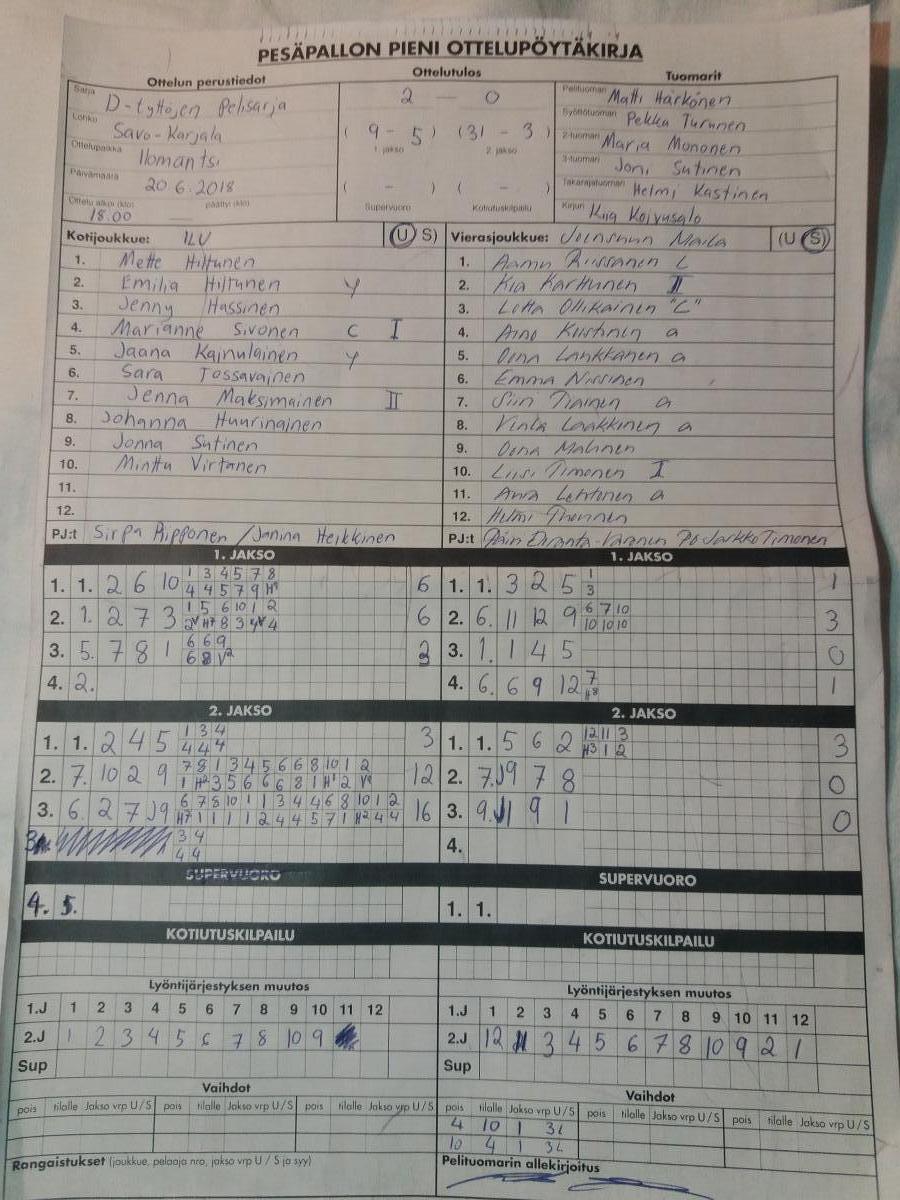 PESÄPALLON PIENI OTTELUPÖYTÄKIRJA
Ottelun perustiedot
Sarja D-tyttöjen Pelisarja
Lohko Savo-Karjala
Ottelupaikka Ilomantsi
Päivämäärä 20.6.2018
Ottelu alkoi (klo) 18.00 päättyi (klo)
Ottelutulos
2 — 0
(9 - 5) (31 - 3)
1. jakso 2. jakso
( - ) ( - )
Supervuoro Kotiutuskilpailu
Tuomarit
Pelituomari Matti Härkönen
Syöttötuomari Pekka Turunen
2-tuomari Marja Mononen
3-tuomari Joni Sutinen
Takarajatuomari Helmi Kastinen
Kirjuri Kiia Koivusalo
Kotijoukkue: ILU (U S)
1. Mette Hiltunen
2. Emilia Hiltunen Y
3. Jenny Hassinen
4. Marianne Sivonen C I
5. Jaana Kainulainen Y
6. Sara Tossavainen
7. Jenna Maksimainen II
8. Johanna Huuringinen
9. Jonna Sutinen
10. Minttu Virtanen
11.
12.
PJ:t Sirpa Piipponen / Janina Heikkinen
Vierasjoukkue: Joensuun Maila (U S)
1. Aamu Riissanen L
2. Kia Karttunen II
3. Lotta Ollikainen "C"
4. Aino Kustinen a
5. Oona Lankkanen a
6. Emma Nissinen
7. Siiri Tiainen a
8. Vinla Laakkinen a
9. Oona Malinen
10. Liisi Timonen I
11. Anra Lehtonen a
12. Helmi Thonnen
PJ:t Jarkko Timonen
1. JAKSO
1. 1. 2 6 10 1 3 4 5 7 8 6
4 4 5 7 9
2. 1. 2 7 3 1 5 6 10 1 2 6
3. 5. 7 8 1 6 6 9 3
6 8
4. 2.
1. JAKSO
1. 1. 3 2 5 1 1
3
2. 6. 11 12 9 6 7 10 3
10 10 10
3. 1. 1 4 5 0
4. 6. 6 9 12 7 1
H8
2. JAKSO
1. 1. 2 4 5 1 3 4 3
4 4 4
2. 7. 10 2 9 7 8 1 3 4 5 6 6 8 10 1 2 12
1 H2 3 5 6 6 6 8 1 H1 2
3. 6. 2 7 J9 6 7 8 10 1 1 3 4 4 6 8 10 1 2 16
H7 1 1 1 1 2 4 4 5 7 1 H2 4 4
3 4
4 4
2. JAKSO
1. 1. 5 6 2 12 11 3 3
H3 1 2
2. 7. J9 7 8 0
3. 9. 9 1 0
4.
SUPERVUORO
4. 5.
SUPERVUORO
1. 1.
KOTIUTUSKILPAILU
KOTIUTUSKILPAILU
Lyöntijärjestyksen muutos
1.J 1 2 3 4 5 6 7 8 9 10 11 12
2.J 1 2 3 4 5 6 7 8 10 9
Sup
Lyöntijärjestyksen muutos
1.J 1 2 3 4 5 6 7 8 9 10 11 12
2.J 12 11 3 4 5 6 7 8 10 9 2 1
Sup
Vaihdot
pois tilalle Jakso vrp U / S pois tilalle Jakso vrp U / S pois tilalle Jakso vrp U / S
Vaihdot
pois tilalle Jakso vrp U / S pois tilalle Jakso vrp U / S pois tilalle Jakso vrp U / S
4 10 1 3L
10 4 1 3L
Rangaistukset (joukkue, pelaaja nro, jakso vrp U / S ja syy)
Pelituomarin allekirjoitus